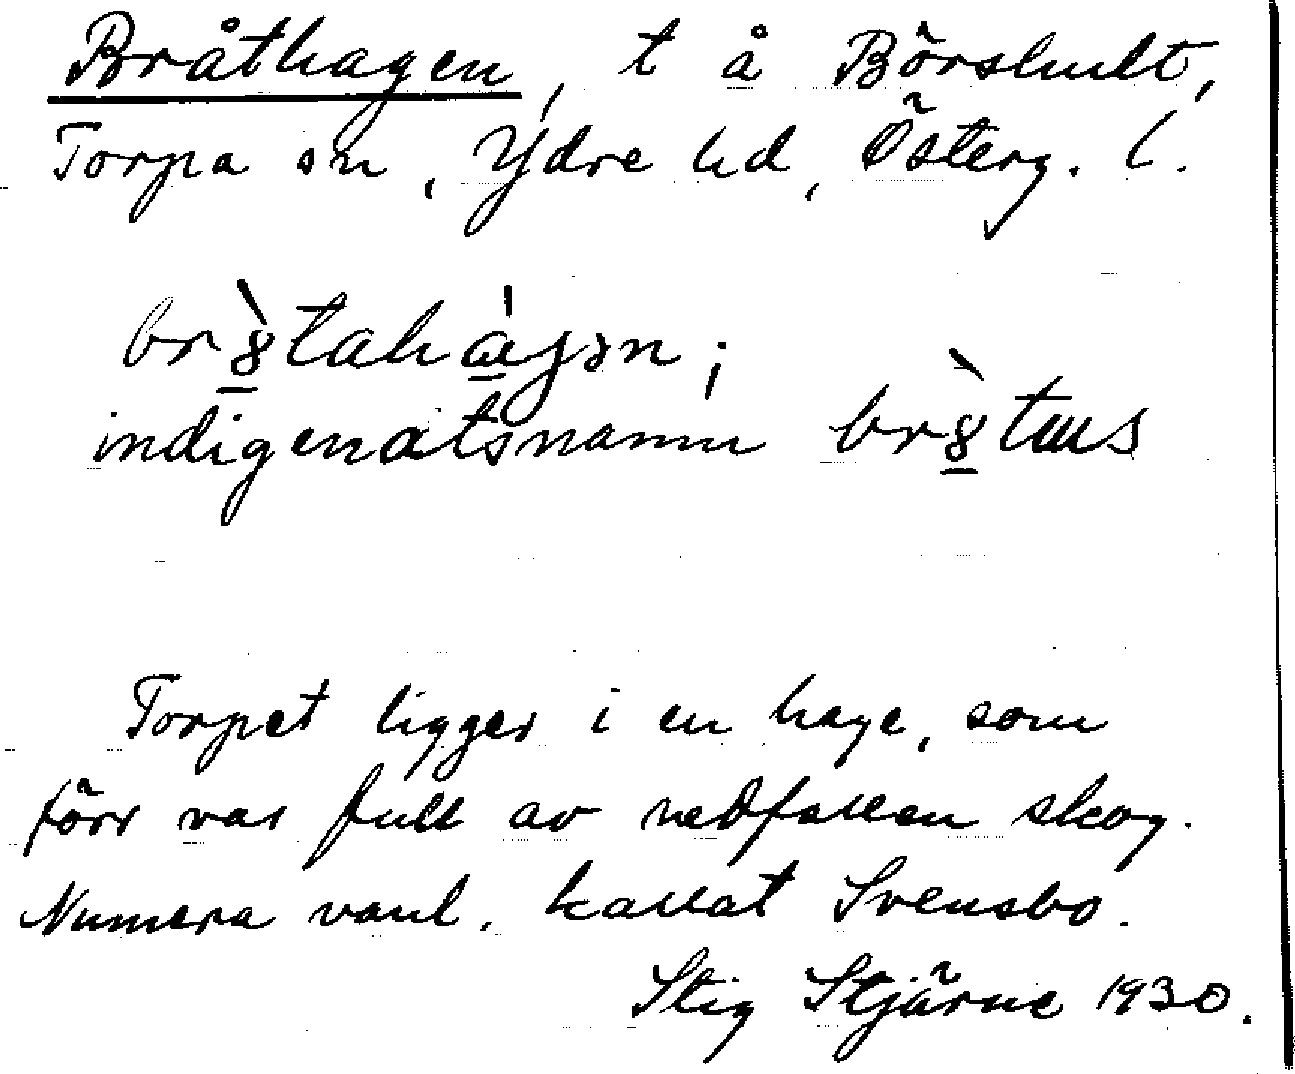 Bråthagen, t å Börshult,
Torpa sn, Ydre hd, Österg. l.
indigenatsnamn
Torpet ligger i en hage, som
förr var full av nedfallen skog.
Numera vanl. kallat Svensbo.
Stig Stjärne 1930.